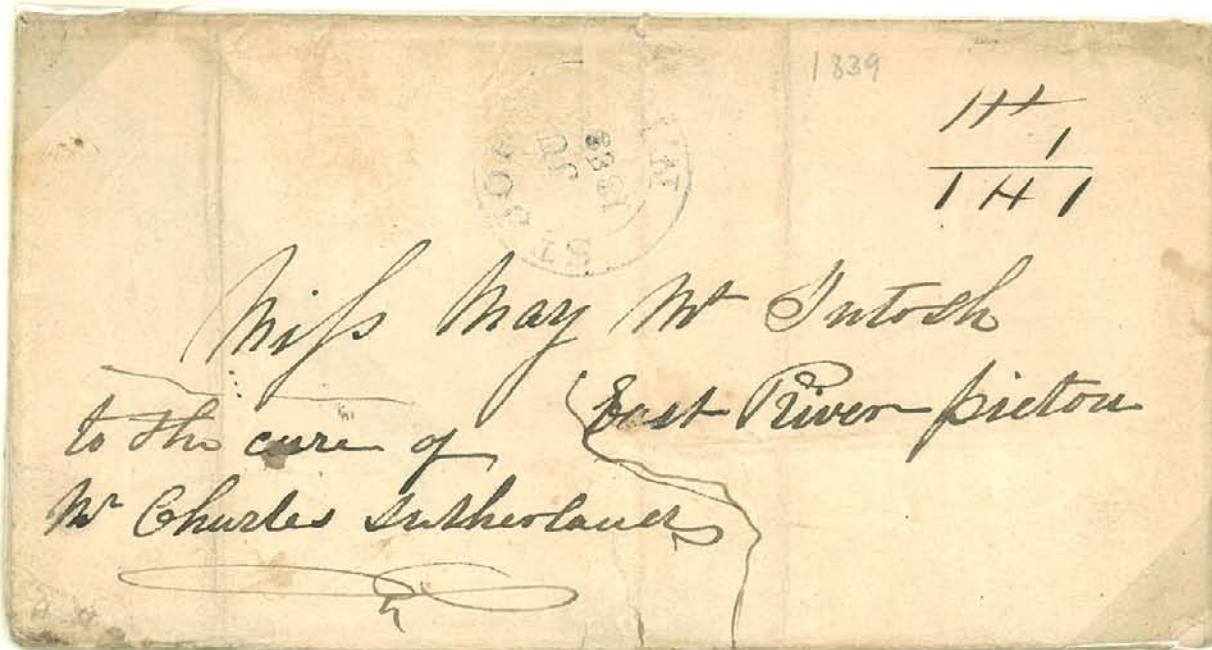 1839
Miss May Mc Intosh
East River pictou
to the care of
Mr Charles Sutherland
ST